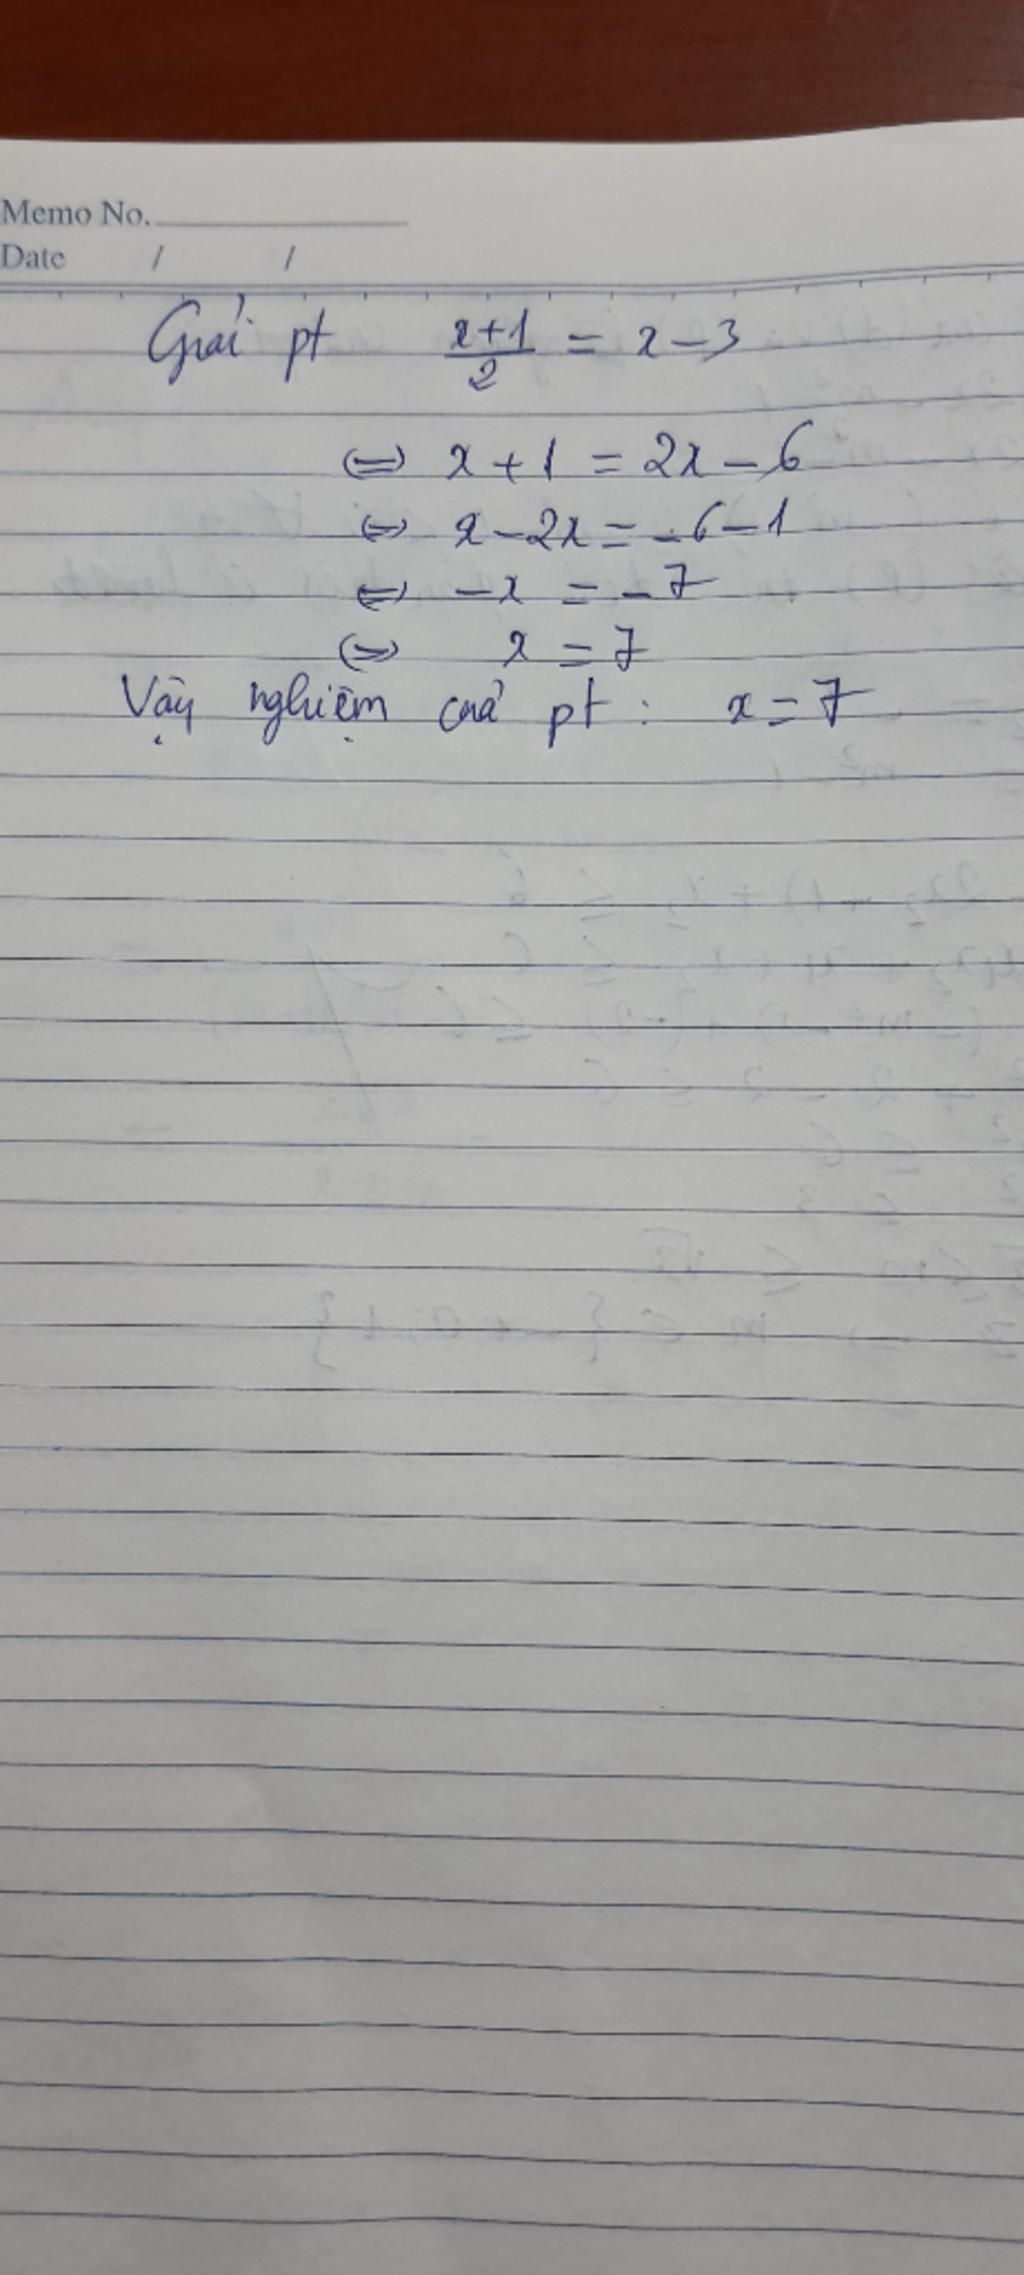 Memo No.
Date / /
Giải pt x+1/2 = x-3
<=> x+1 = 2x-6
<=> x-2x = -6-1
<=> -x = -7
<=> x = 7
Vậy nghiệm của pt : x = 7